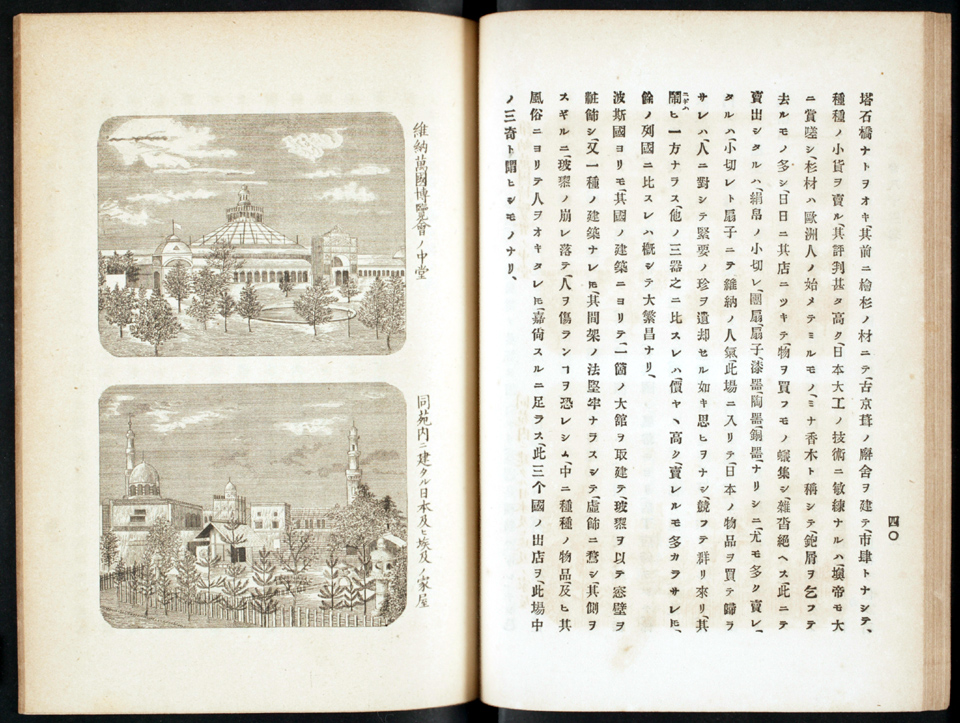 塔石橋ナトヲオキ、其前ニ檜杉ノ材ニテ、古京葺ノ廨舍ヲ建テ、市肆トナシテ、
種種ノ小貨ヲ賣ル、其評判甚タ高ク、日本大工ノ技術ニ敏練ナルハ、墺帝モ大
ニ賞嗟シ、杉材ハ歐洲人ノ始メテミルモノ、ミナ香木ト稱シテ、鉋屑ヲ乞フテ
去ルモノ多シ、日日ニ其店ニツキテ、物ヲ買フモノ蟻集シ、雜沓絕ヘス、此ニテ
賣出シタルハ、絹帛ノ小切レ、團扇、扇子、漆器、陶器、銅器ナリシニ、尤モ多ク賣レ
タルハ、小切レト扇子ニテ、維納ノ人氣、此場ニ入リテ、日本ノ物品ヲ買テ歸ラ
サレハ、人ニ對シテ緊要ノ珍ヲ遺却セル如キ思ヒヲナシ、競フテ群リ來リ、其
鬧ヒ一方ナラス、他ノ三器之ニ比スレハ、價ヤヽ高シ、賣レルモ多カラサレ𪜈、
餘ノ列國ニ比スレハ、概シテ大繁昌ナリ、
波斯國ヨリモ、其國ノ建築ニヨリテ、一箇ノ大館ヲ取建テ、玻瓈ヲ以テ窓壁ヲ
粧飾シ、又一種ノ建築ナレ𪜈、其間架ノ法堅牢ナラスシテ、虛飾ニ騖シ、其側ヲ
スギルニ、玻瓈ノ崩レ落テ、人ヲ傷ランヿヲ恐レシム、中ニ種種ノ物品、及ヒ其
風俗ニヨリテ人ヲオキタレ𪜈、嘉尙スルニ足ラス、此三个國ノ出店ヲ、此場中
ノ三奇ト鬧ヒシモノナリ、
四〇
維納萬國博覽會ノ中堂
同苑內ニ建タル日本及ヒ埃及ノ家屋